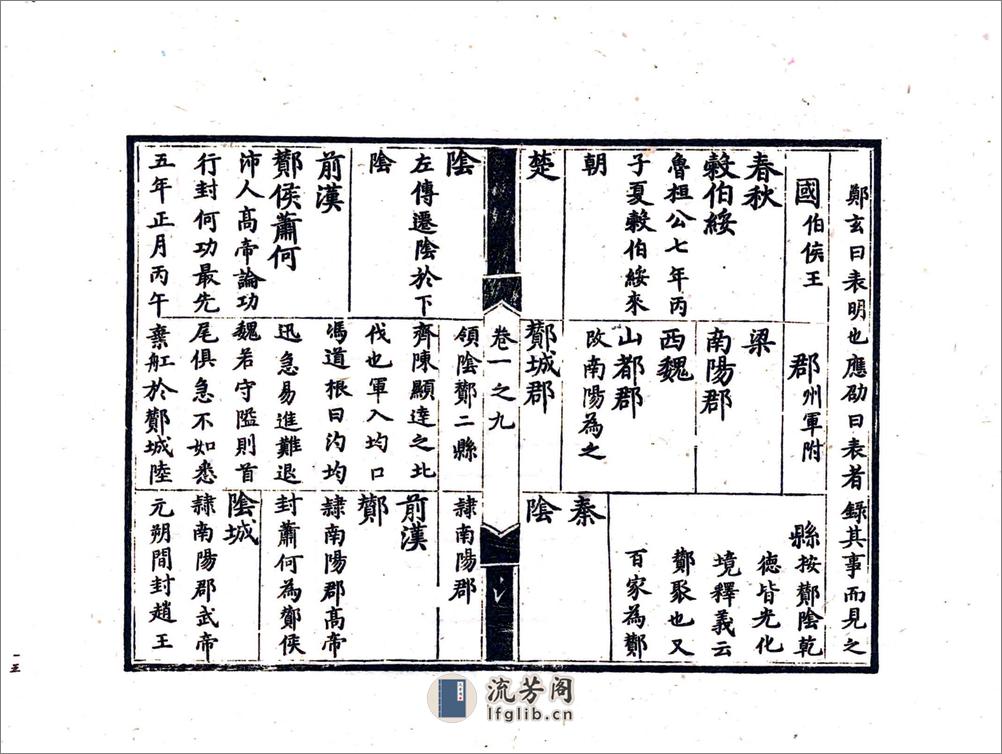 鄭玄曰表明也應劭曰表者錄其事而見之
國伯侯王
郡州軍附
縣按酇陰乾
德皆光化
境釋義云
酇聚也又
百家為酇
春秋
穀伯綏
魯桓公七年丙
子夏穀伯綏來
朝
楚
梁
南陽郡
西魏
山都郡
改南陽為之
酇城郡
秦
陰
卷一之九
陰
左傳遷陰於下
陰
前漢
酇侯蕭何
沛人高帝論功
行封何功最先
五年正月丙午
領陰酇二縣
齊陳顯達之北
伐也軍入均口
馮道根曰汮均
迅急易進難退
魏若守隘則首
尾俱急不如悉
棄舡於酇城陸
隸南陽郡
前漢
酇
隸南陽郡高帝
封蕭何為酇侯
陰城
隸南陽郡武帝
元朔間封趙王
一五
流芳阁
lfglib.cn